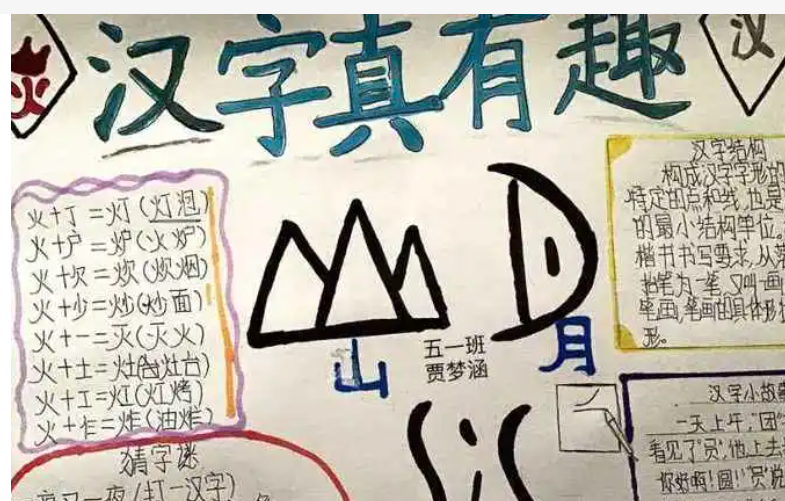 炎
汉字真有趣
汉
火+丁=灯(灯泡)
火+户=炉(火炉)
火+欠=炊(炊烟)
火+少=炒(炒面)
火+一=灭(灭火)
火+土=灶(灶台)
火+工=灯(灯烤)
火+乍=炸(油炸)
猜字谜
一夜又一夜(打一汉字)
山
五一班
贾梦涵
月
汉字结构
构成汉字字形的
特定的点和线,也是
的最小结构单位。
楷书书写要求,从落
抬笔为一笔,又叫一画
笔画,笔画的具体形状
形。
汉字小故
一天上午,"团"
看见了"员",他上去
你好啊!圆!"员"说